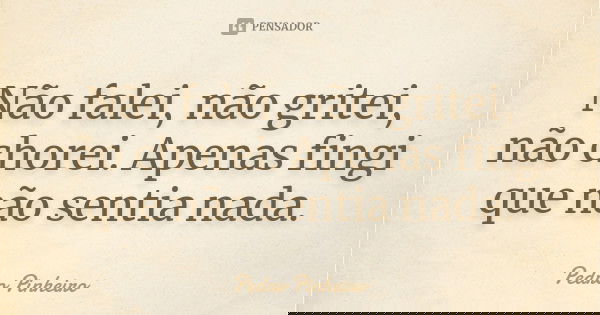 PENSADOR
Não falei, não gritei,
não chorei. Apenas fingi
que não sentia nada.
Pedro Pinheiro